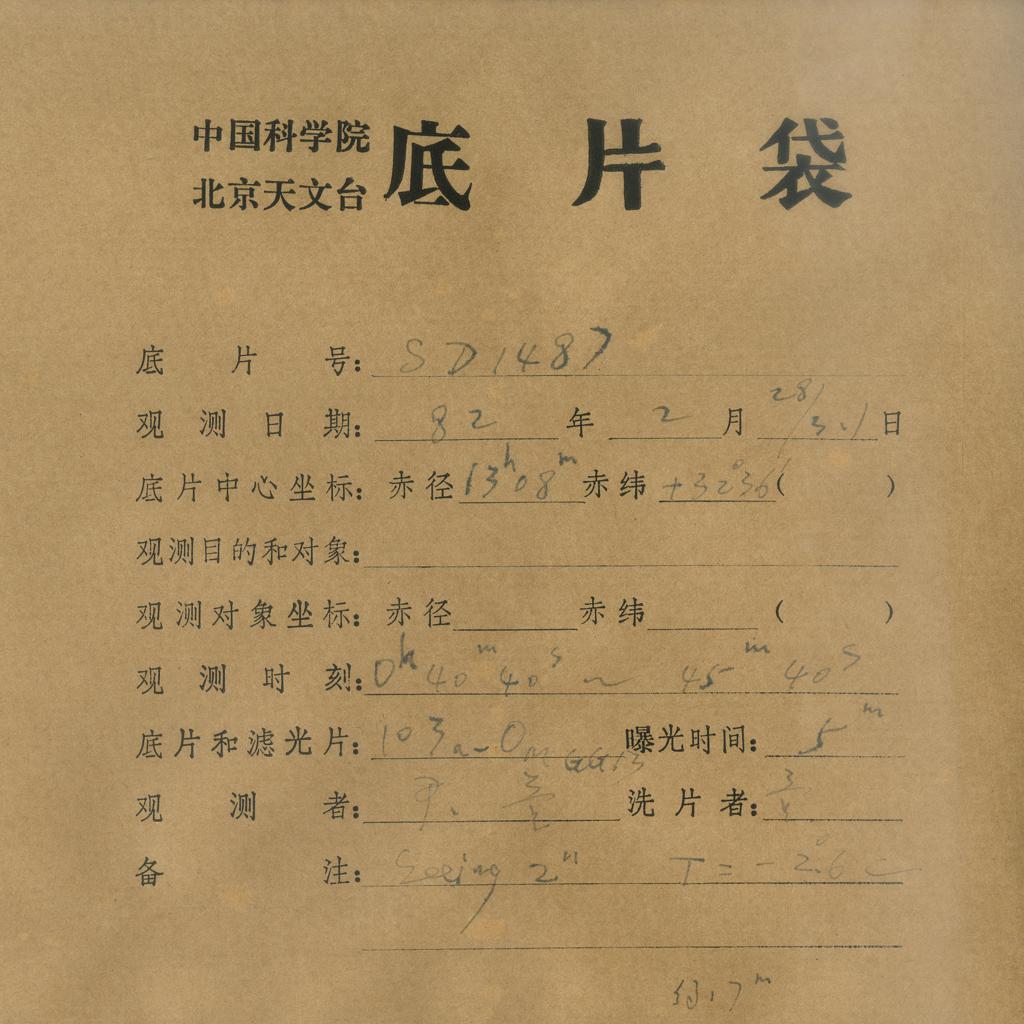 中国科学院
北京天文台 底片袋
底片号: SD1487
观测日期: 82 年 2 月 28/3.1 日
底片中心坐标: 赤径 13h08m 赤纬 +32°36′( )
观测目的和对象:
观测对象坐标: 赤径 赤纬 ( )
观测时刻: 0h 40m 40s ~ 45m 40s
底片和滤光片: 103a-O GG13 曝光时间: 5m
观测者: 尹. 洗片者:
备注: Seeing 2" T = -2.6°C